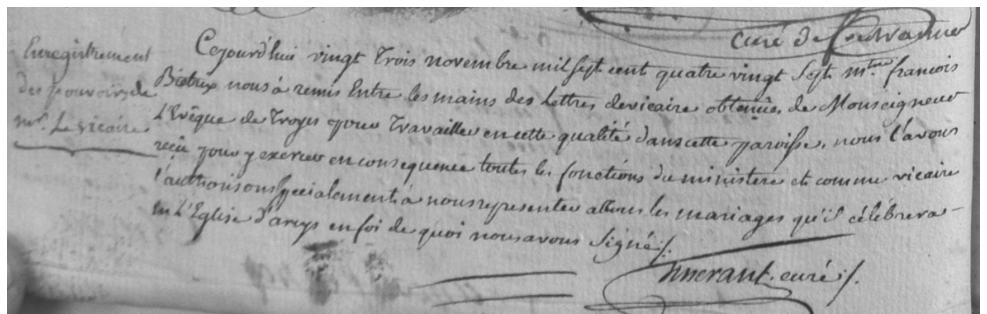 curé de
Enregistrement
des pouvoirs de
mr. Le vicaire
Cejourd'hui vingt Trois novembre mil sept cent quatre vingt Sept mtre françois
Biétrix nous à remis Entre les mains des Lettres de vicaire obtenües de Monseigneur
L'Evêque de Troyes pour Travailler en cette qualité dans cette paroisse, nous l'avons
reçu pour y exercer en consequence toutes les fonctions du ministere et comme vicaire
l'authorisons specialement à nous representer à tous les mariages qu'il célébrera
en L'Eglise d'arcys en foi de quoi nous avons Signé ./.
curé ./.